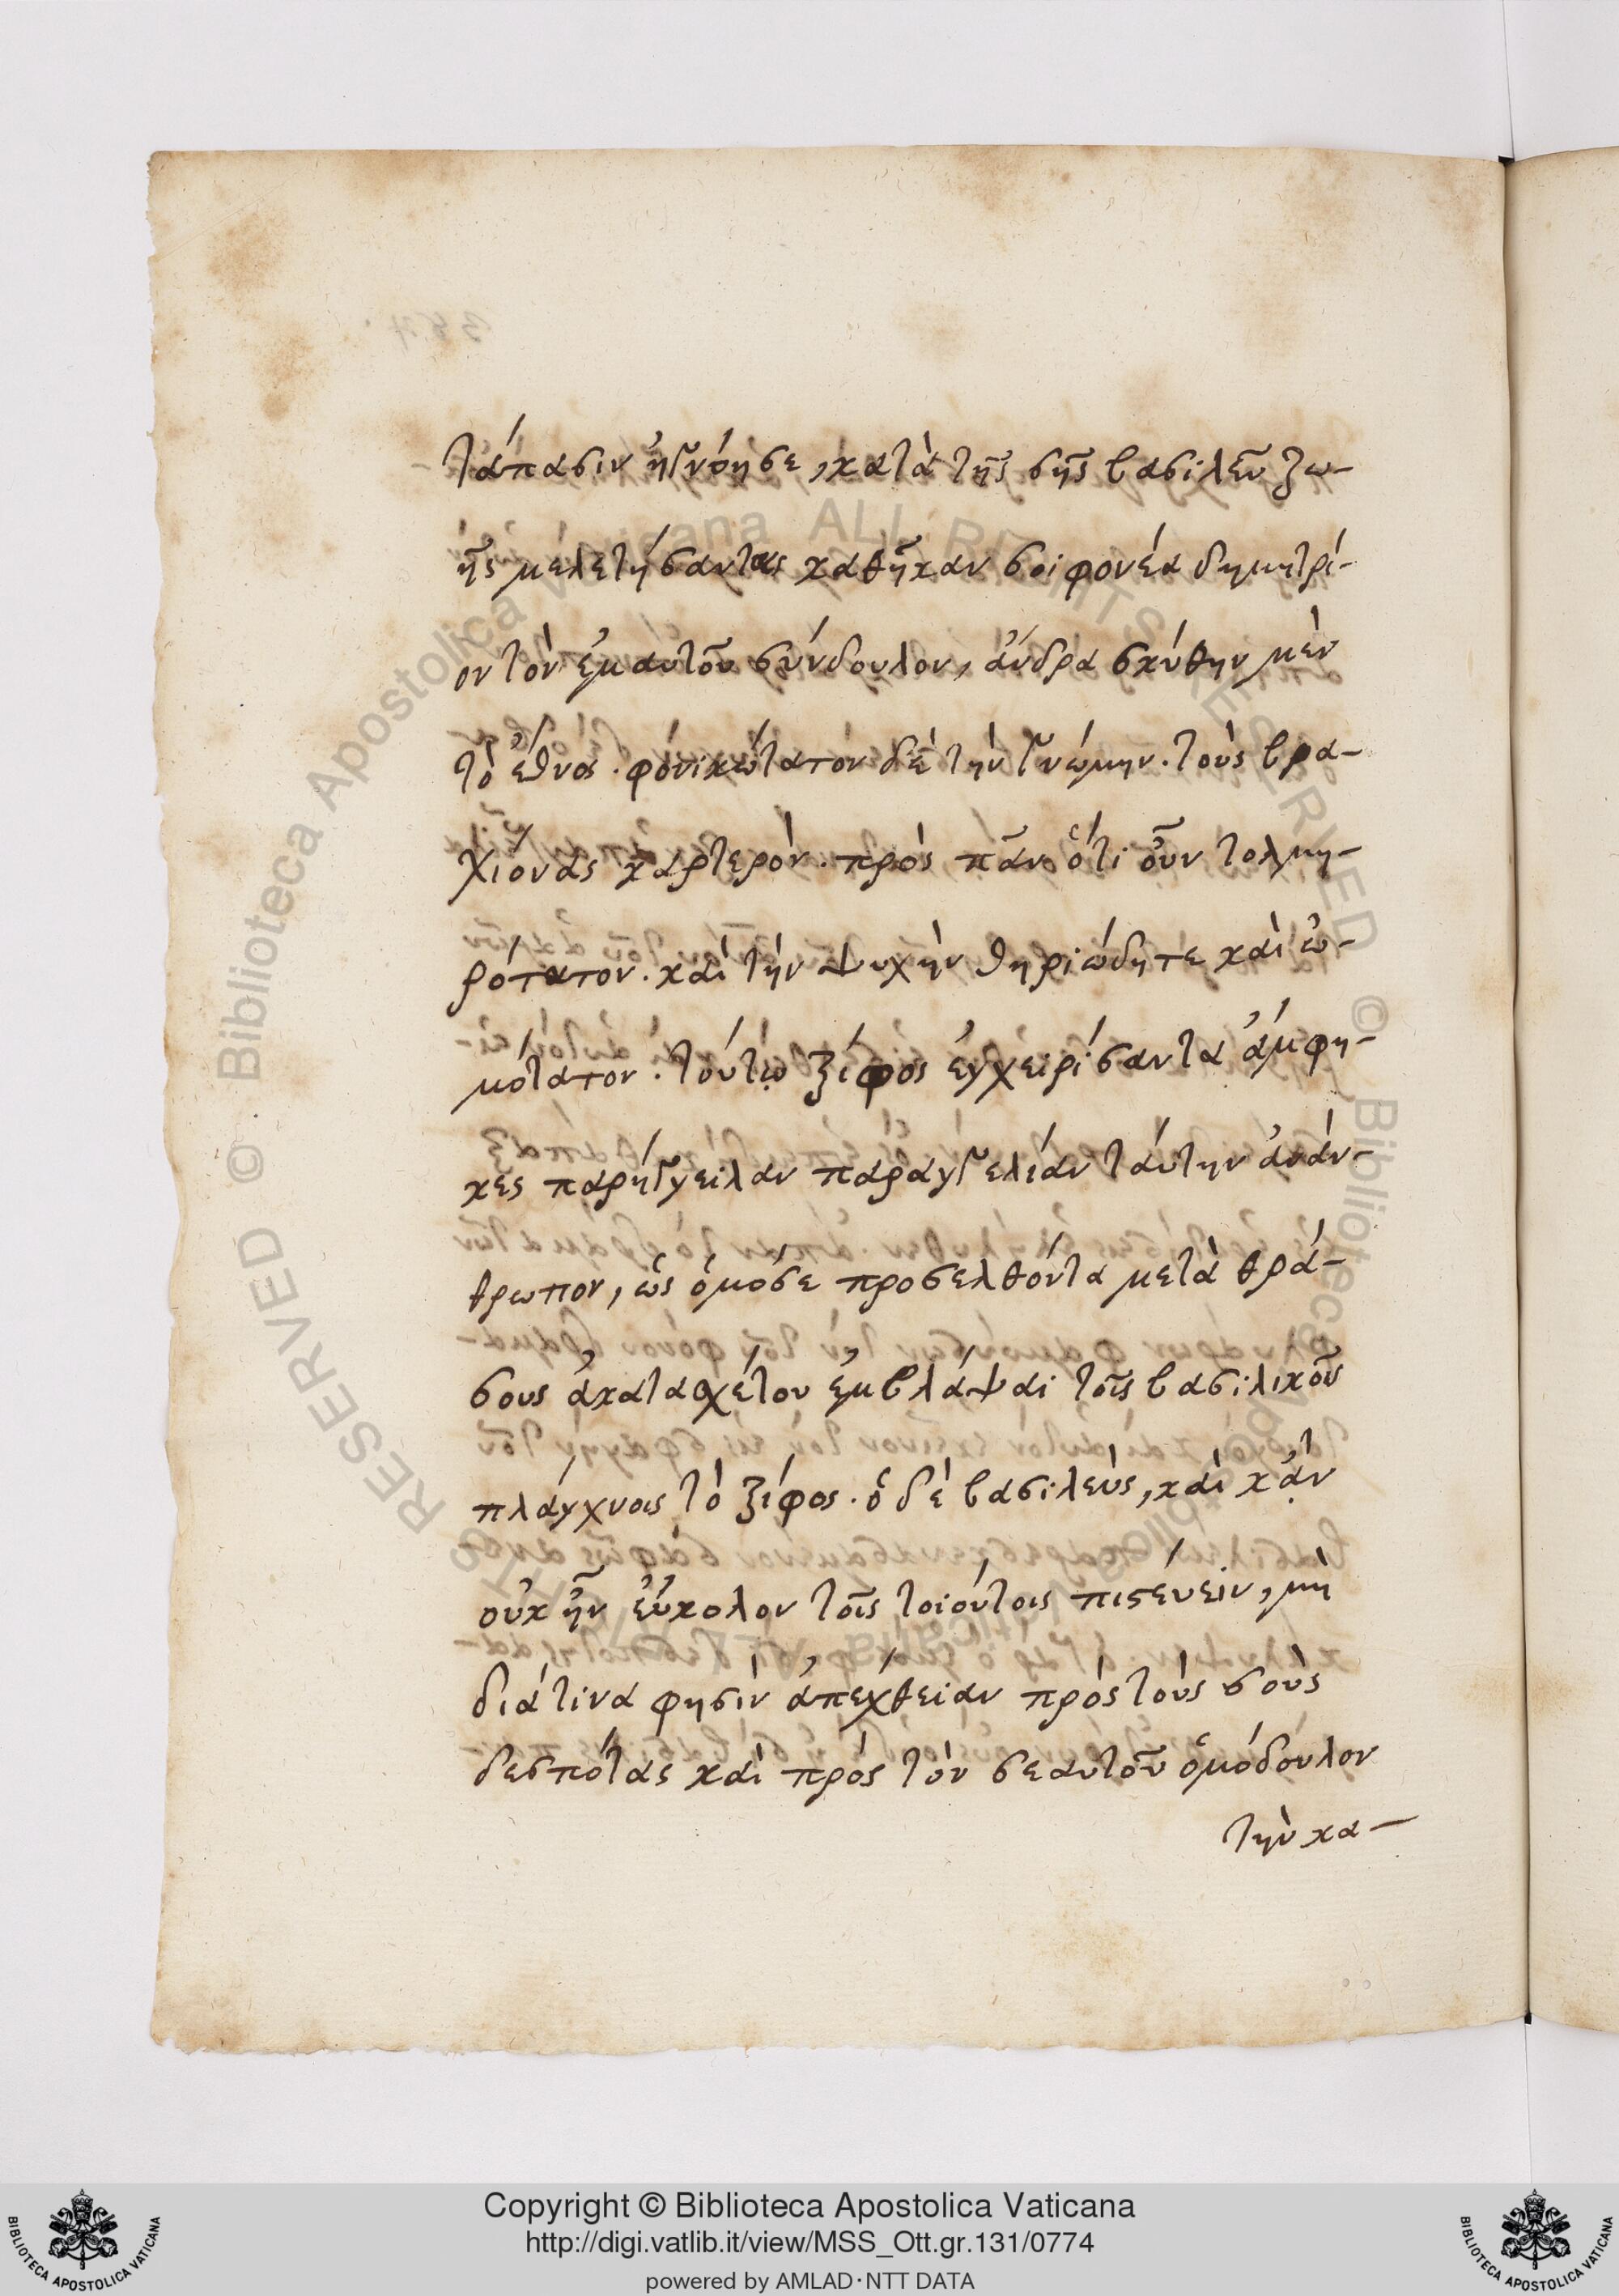 τάπασιν ἠγνόησε, κατὰ τῆς σῆς βασιλεῦ ζω-
ῆς μελετήσαντας καθῆκαν σοι φονέα δημητρί-
ον τὸν ἐμαυτοῦ σύνδουλον, ἄνδρα σκύθην μὲν
τὸ ἔθνος. φονικώτατον δὲ τὴν γνώμην. τοὺς βρα-
χίονας καρτερὸν. πρὸς πᾶν ὁτι οὖν τολμη-
ρότατον. καὶ τὴν ψυχὴν θηριώδη τε καὶ ὠ-
μότατον. τούτῳ ξίφος ἐγχειρίσαντα ἄμφη-
κες παρήγγειλαν παραγγελίαν ταύτην ἀπάν-
θρωπον, ὡς ὁμόσε προσελθόντα μετὰ θρά-
σους ἀκατασχέτου ἐμβλάψαι τοῖς βασιλικοῖς
πλάγχνοις τὸ ξίφος. ὁ δὲ βασιλεὺς, καὶ κᾂν
οὐκ ἦν εὔκολον τοῖς τοιούτοις πιστεύειν, μὴ
διά τινα φησὶν ἀπέχθειαν πρὸς τοὺς σοὺς
δεσπότας καὶ πρὸς τὸν σεαυτοῦ ὁμόδουλον
τὴν κα-
Copyright © Biblioteca Apostolica Vaticana
http://digi.vatlib.it/view/MSS_Ott.gr.131/0774
powered by AMLAD·NTT DATA